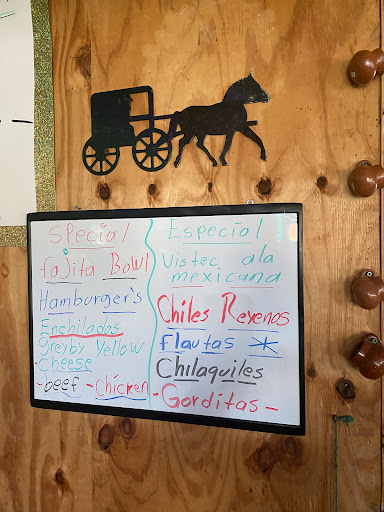 Special
fajita Bowl
Hamburger's
Enchiladas
greyby Yellow
cheese
-beef -Chicken
Especial
Vistec ala
mexicana
Chiles Reyenos
Flautas
Chilaquiles
-Gorditas-